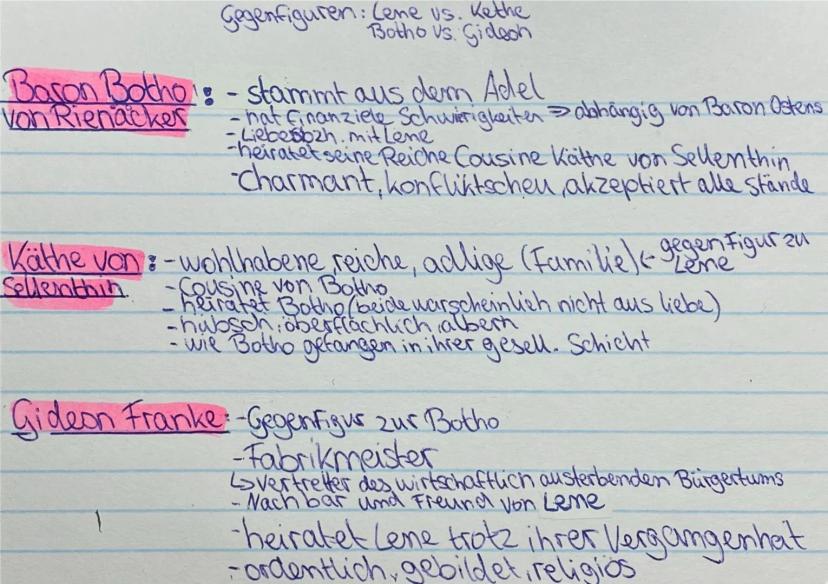 Gegenfiguren: Lene vs. Kethe
Botho vs. Gideon
Baron Botho : - stammt aus dem Adel
von Rienäcker - hat finanziele Schwirigkeiten => abhängig von Baron Ostens
- Liebesbzh. mit Lene
- heiratet seine Reiche Cousine Käthe von Sellenthin
- Charmant, konfliktscheu, akzeptiert alle Stände
Käthe von : - wohlhabene reiche, adlige (Familie) ← gegenfigur zu Lene
Sellenthin - Cousine von Botho
- heiratet Botho (beide warscheinlich nicht aus liebe)
- hübsch, oberflächlich, albern
- wie Botho gefangen in ihrer gesell. Schicht
Gideon Franke: - Gegenfigur zur Botho
- Fabrikmeister
↳ vertretter des wirtschaftlich austerbenden Bürgertums
- Nachbar und Freund von Lene
- heiratet Lene trotz ihrer Vergangenhat
- ordentlich, gebildet, religiös